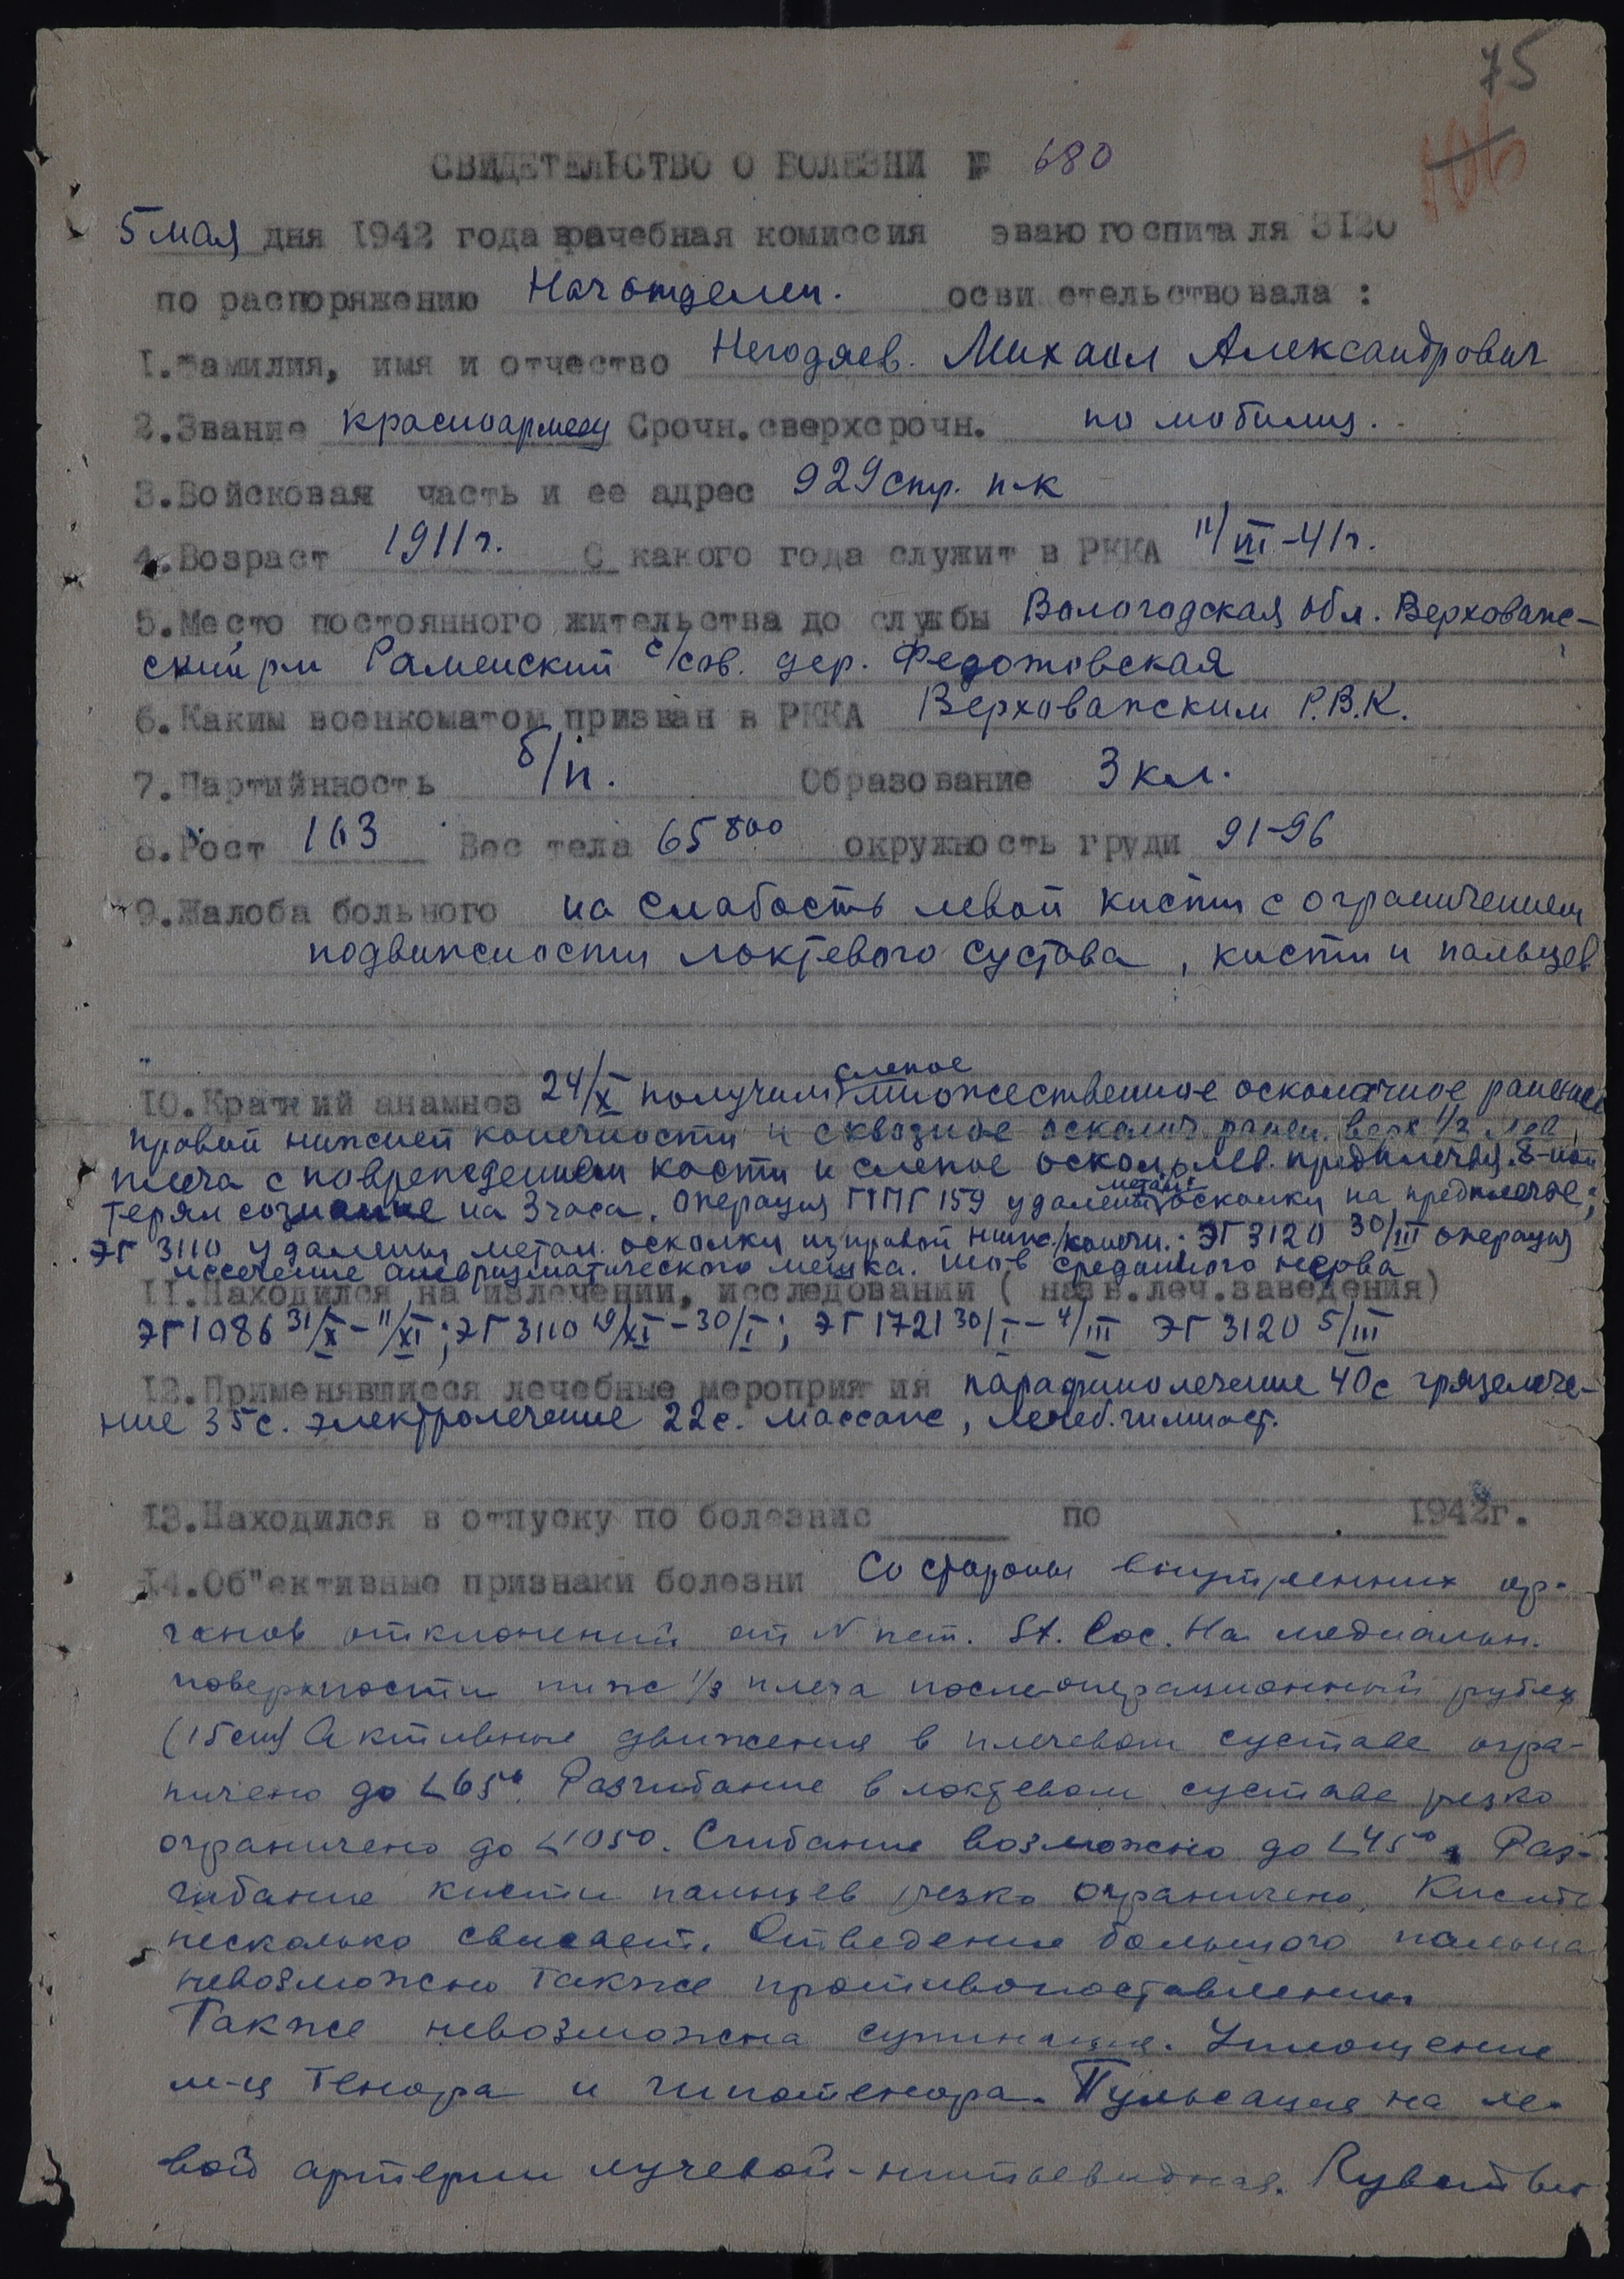 75
106
СВИДЕТЕЛЬСТВО О БОЛЕЗНИ № 680
5 мая дня 1942 года врачебная комиссия эвакогоспиталя 3120
по распоряжению Нач отделен. освидетельствовала :
1.Фамилия, имя и отчество Негодяев. Михаил Александрович
2.Звание красноармеец Срочн.сверхсрочн. по мобилиз.
3.Войсковая часть и ее адрес 929 стр. п-к
4.Возраст 1911г. С какого года служит в РККА 11/VII-41г.
5.Место постоянного жительства до службы Вологодская обл. Верховаж-
ский р-н Раменский с/сов. дер. Федотовская
6.Каким военкоматом призван в РККА Верховажским Р.В.К.
7.Партийнность б/п. Образование 3 кл.
8.Рост 163 Вес тела 65800 окружность груди 91-96
9.Жалоба больного на слабость левой кисти с ограничением
подвижности локтевого сустава, кисти и пальцев
10.Краткий анамнез 24/X получил слепое множественное осколочное ранение
правой нижней конечности и сквозное осколоч. ранен. верх 1/3 лев.
плеча с повреждением кости и слепое осколь. лев. предплечья. Б-ной
терял сознание на 3 часа. Операция ППГ 159 удалены метал. осколки на предплечье;
ЭГ 3110 удалены метал. осколки из правой нижн./конечн.: ЭГ 3120 30/III операция
иссечение аневризматического мешка. шов срединного нерва
11.Находился на излечении, исследовании ( назв.леч.заведения)
ЭГ 1086 31/X - 11/XI; ЭГ 3110 19/XI - 30/I; ЭГ 1721 30/I - 4/III ЭГ 3120 5/III
12.Применявшиеся лечебные мероприятия парафинолечение 40с грязелече-
ние 35с. электролечение 22с. массаж, лечеб. гимнаст.
13.Находился в отпуску по болезнис по 1942г.
14.Об"ективные признаки болезни Со стороны внутренних ор-
ганов отклонений от N нет. St. loc. На медиальн.
поверхности ниж 1/3 плеча послеоперационный рубец
(15см) Активные движения в плечевом суставе огра-
ничено до ∠65°. Разгибание в локтевом суставе резко
ограничено до ∠105°. Сгибание возможно до ∠45°. Раз-
гибание кисти пальцев резко ограничено. Кисть
несколько свисает. Отведение большого пальца
невозможно также противопоставление.
Также невозможна супинация. Уплощение
м-ц тенора и гипотенора. Пульсация на ле-
вой артерии лучевой - нитевидная.